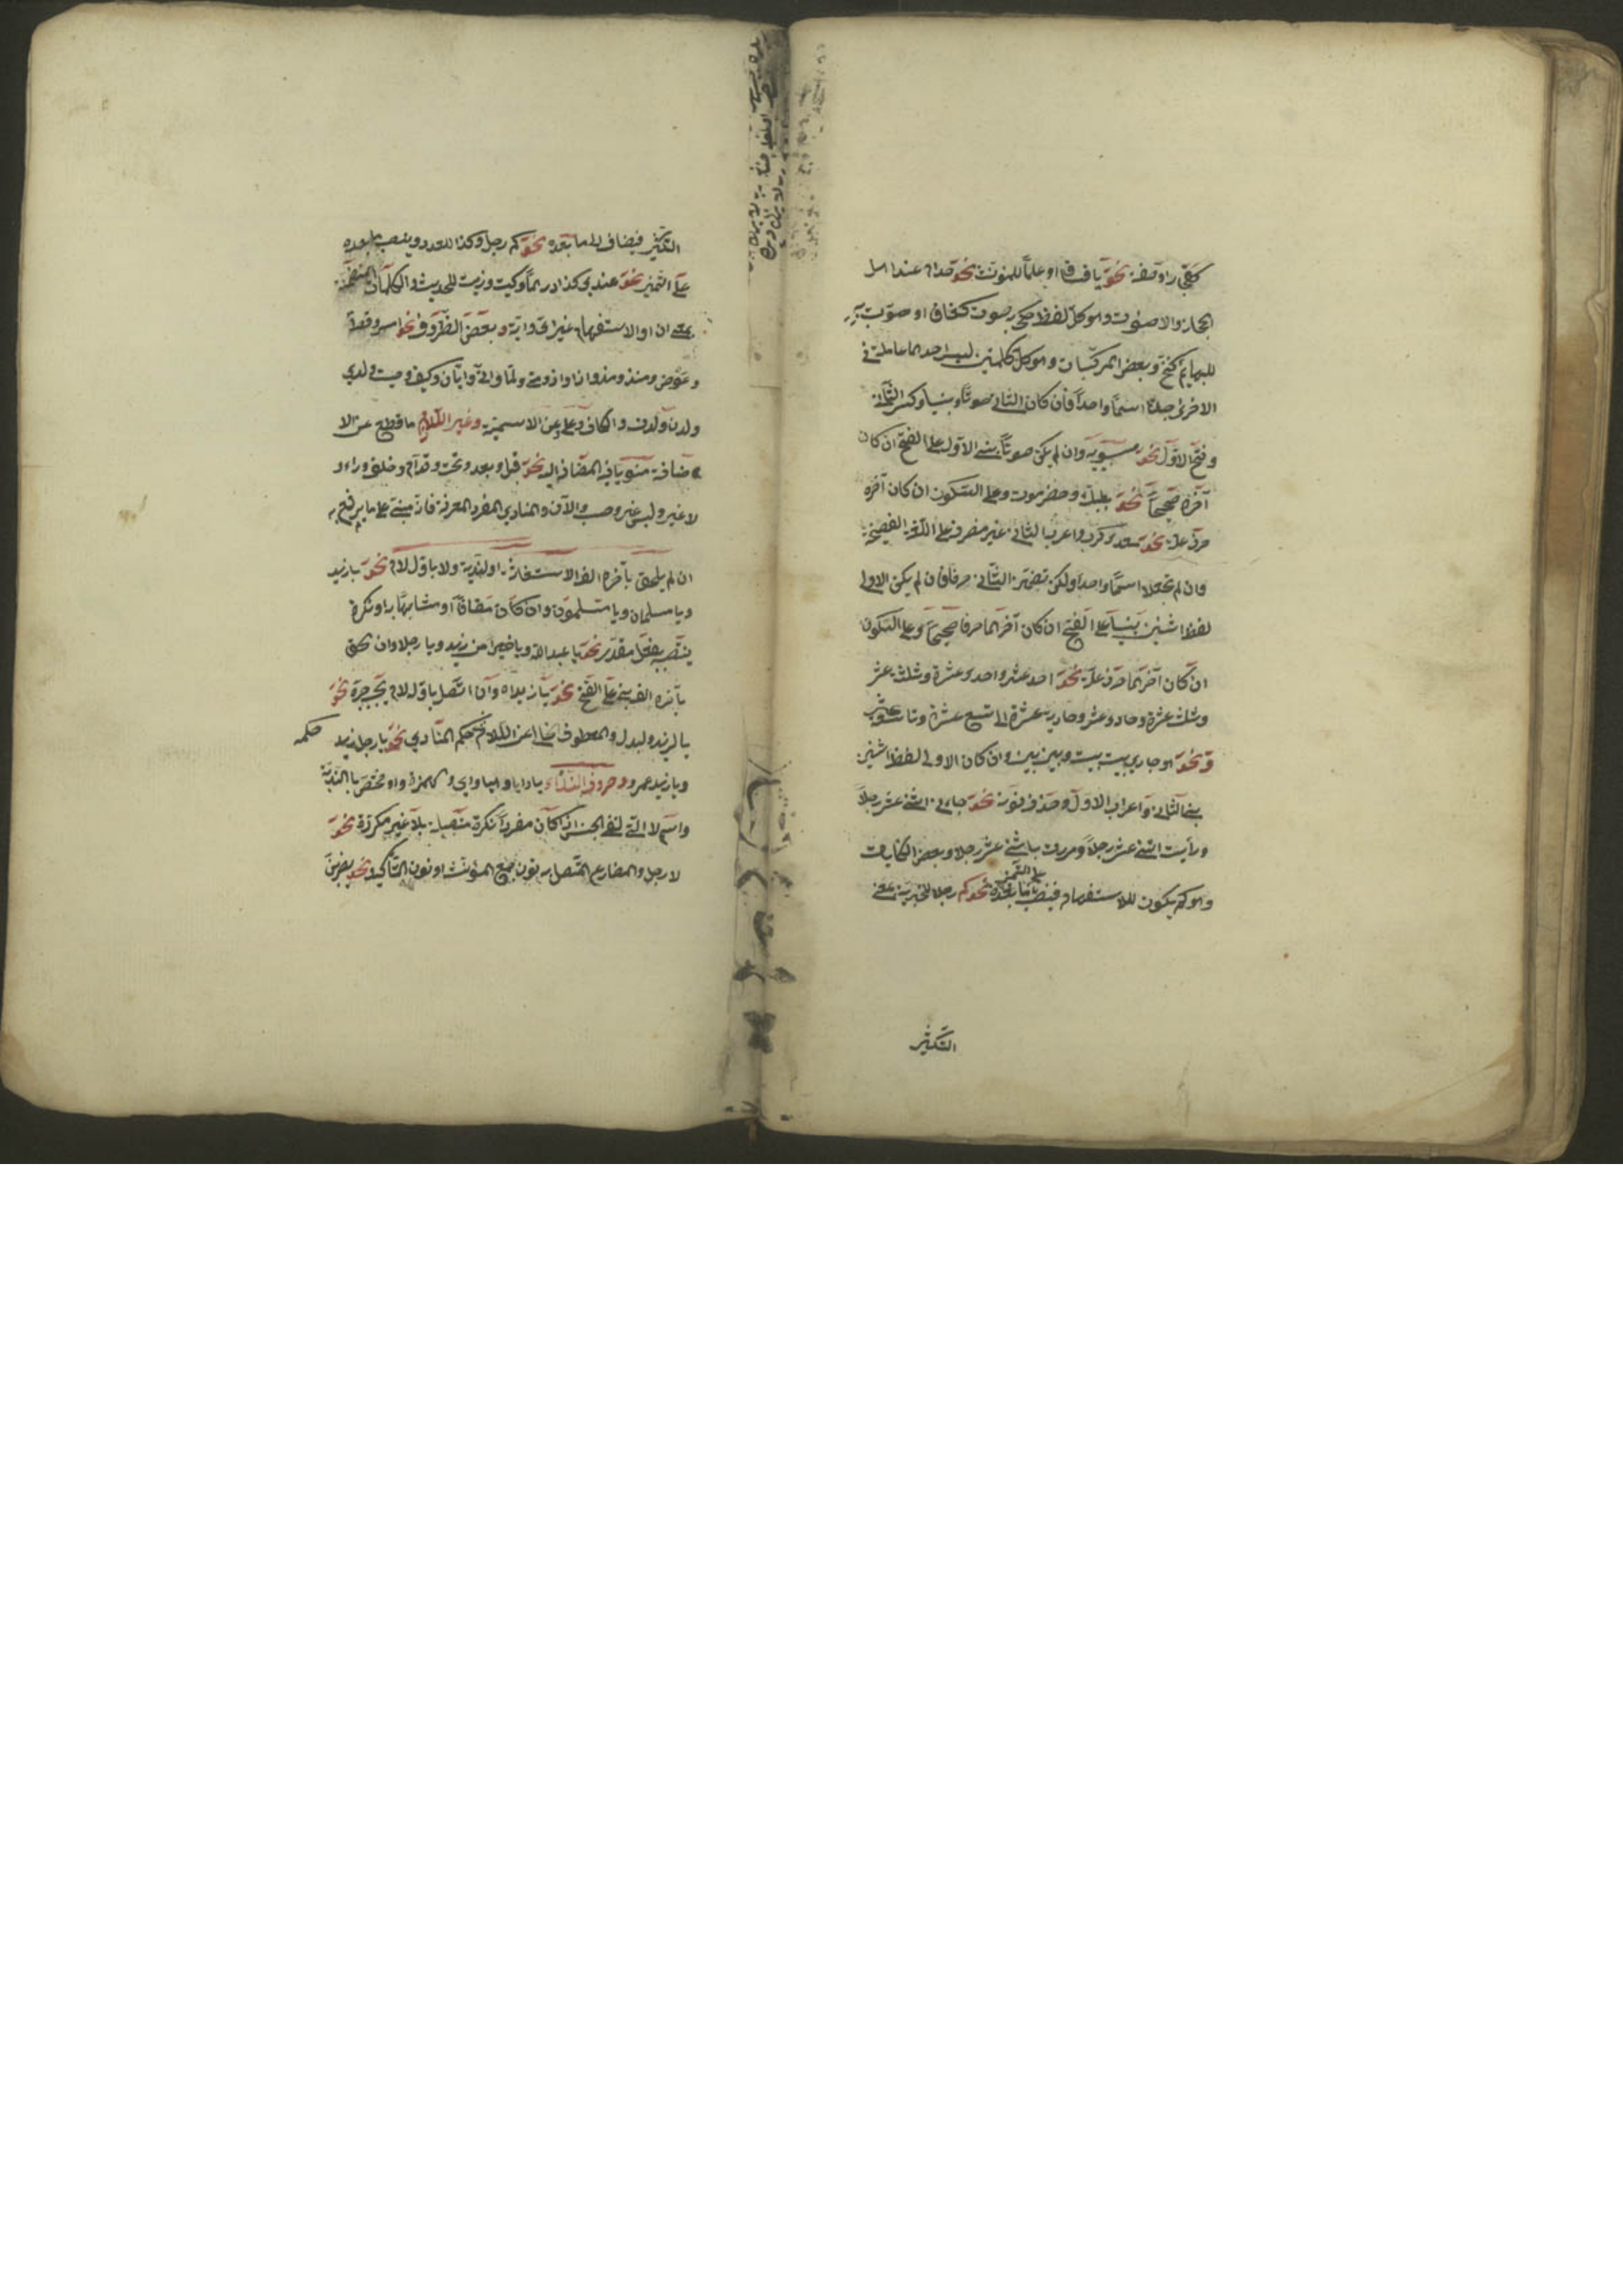 كفجار او صفة نحو يا فساق او علما للمؤنث نحو حذام عند اهل
الحجاز والاصوات وهو كل لفظ حكي به صوت كغاق او صوت به
للبهايم كنخ وبعض المركبات وهو كل كلمتين ليس احديهما عاملة في
الاخرى جعلتا اسما واحدا فان كان الثاني صوتا بنيا وكسر الثاني
وفتح الاول نحو سيبويه وان لم يكن صوتا بني الاول على الفتح ان كان
آخره صحيحا نحو بعلبك وحضرموت وعلى السكون ان كان آخره
حرف علة نحو معدي كرب واعرب الثاني غير منصرف على اللغة الفصيحة
وان لم تجعلا اسما واحدا ولكن تضمن الثاني حرفا فان لم يكن الاولى
لفظ اثنين بنيا على الفتح ان كان آخرهما حرفا صحيحا وعلى السكون
ان كان آخرهما حرف علة نحو احد عشر واحدى عشرة وثلثة عشر
وثلث عشرة وحادي عشر وحادية عشرة الى تسع عشرة وتاسع عشر
ونحو هو جاري بيت بيت وبين بين وان كان الاولى لفظ اثنين
بني الثاني واعرب الاول وحذف نونه نحو جاءني اثني عشر رجلا
ورأيت اثني عشر رجلا ومررت باثني عشر رجلا وبعض الكنايات
وهو كم يكون للاستفهام فينصب ما بعده على التميز نحو كم رجلا وللخبرية بمعنى
التكثير
التكثير فيضاف الى ما بعده نحو كم رجل وكذا للعدد وينصب ما بعده
على التميز نحو عندي كذا درهما وكيت وذيت للحديث والكلمات المتضمنة
بمعنى ان او الاستفهام غير اي واية وبعض الظروف نحو امس وقط
وعوض ومنذ ومذ واذا واذ ومتى ولما وانى وايان وكيف وحيث ولدي
ولدن ولدن والكاف وعلى وعن الاسمية وغير اللازم ما قطع عن الا
ضافة منويا فيه المضاف اليه نحو قبل وبعد وتحت وقدام وخلف ووراء و
لا غير وليس غير وحسب والآن والمنادى المفرد المعرفة فانه مبني على ما يرفع به
ان لم يلحق بآخره الف الاستغاثة او الندبة ولا باوله لام نحو يا زيد
ويا مسلمان ويا مسلمون وان كان مضافا او مشابها به او نكرة
ينتصب بفعل مقدر نحو يا عبد الله ويا خيرا من زيد ويا رجلا وان لحق
بآخره الف بني على الفتح نحو يا زيداه وان اتصل باوله لام يجب جره نحو
يا لزيد والبدل والمعطوف خاليا عن اللام حكمه حكم المنادى نحو يا رجل زيد
ويا زيد وعمرو وحروف النداء يا وايا وهيا واي والهمزة ووا مختص بالندبة
واسم لا التي لنفي الجنس اذا كان مفردا نكرة متصلة بلا غير مكررة نحو
لا رجل والمضارع المتصل به نون جمع المؤنث او نون التأكيد نحو يضربن